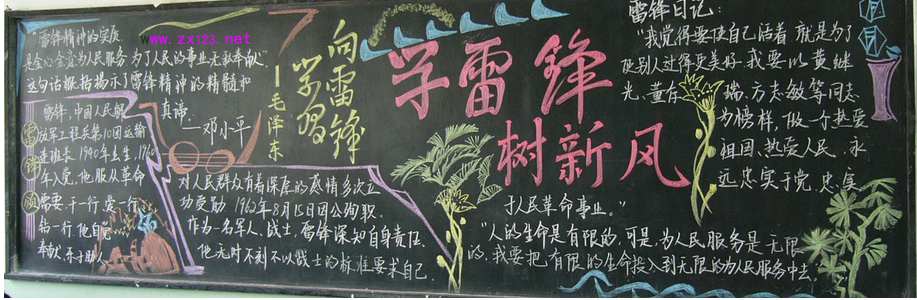 www.zx123.net
"雷锋精神的实质
是全心全意为人民服务,为了人民的事业无私奉献"
这句话概括揭示了雷锋精神的精髓和
真谛。
—邓小平
雷锋,中国人民解
放军工程兵第10团运输
连班长,1940年出生,1960
年入党,他服从革命
需要,干一行,爱一行,
钻一行,他自觉
奉献,乐于助人
向雷锋
学习
—毛泽东
对人民群众有着深厚的感情多次立
功受勋,1962年8月15日因公殉职。
作为一名军人、战士,雷锋深知自身责任,
他无时不刻不以战士的标准要求自己。
学雷锋
树新风
雷锋日记:
"我觉得要使自己活着,就是为了
使别人过得更美好,我要以黄继
光、董存瑞、方志敏等同志
为榜样,做一个热爱
祖国、热爱人民、永
远忠实于党,忠实
于人民革命事业。"
"人的生命是有限的,可是,为人民服务是无限
的,我要把有限的生命投入到无限的为人民服务中去。"